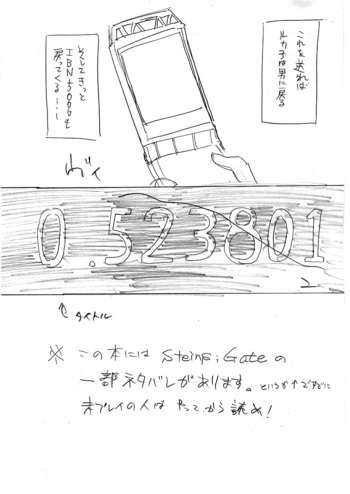 これを送れば
ルカ子は男に戻る
そしてきっと
IBN5100も
戻ってくる…!
ヴィ
0.523801
↑
タイトル
※ この本には Steins;Gateの
一部ネタバレがあります。というか↑ですでに
未プレイの人は やってから読め!